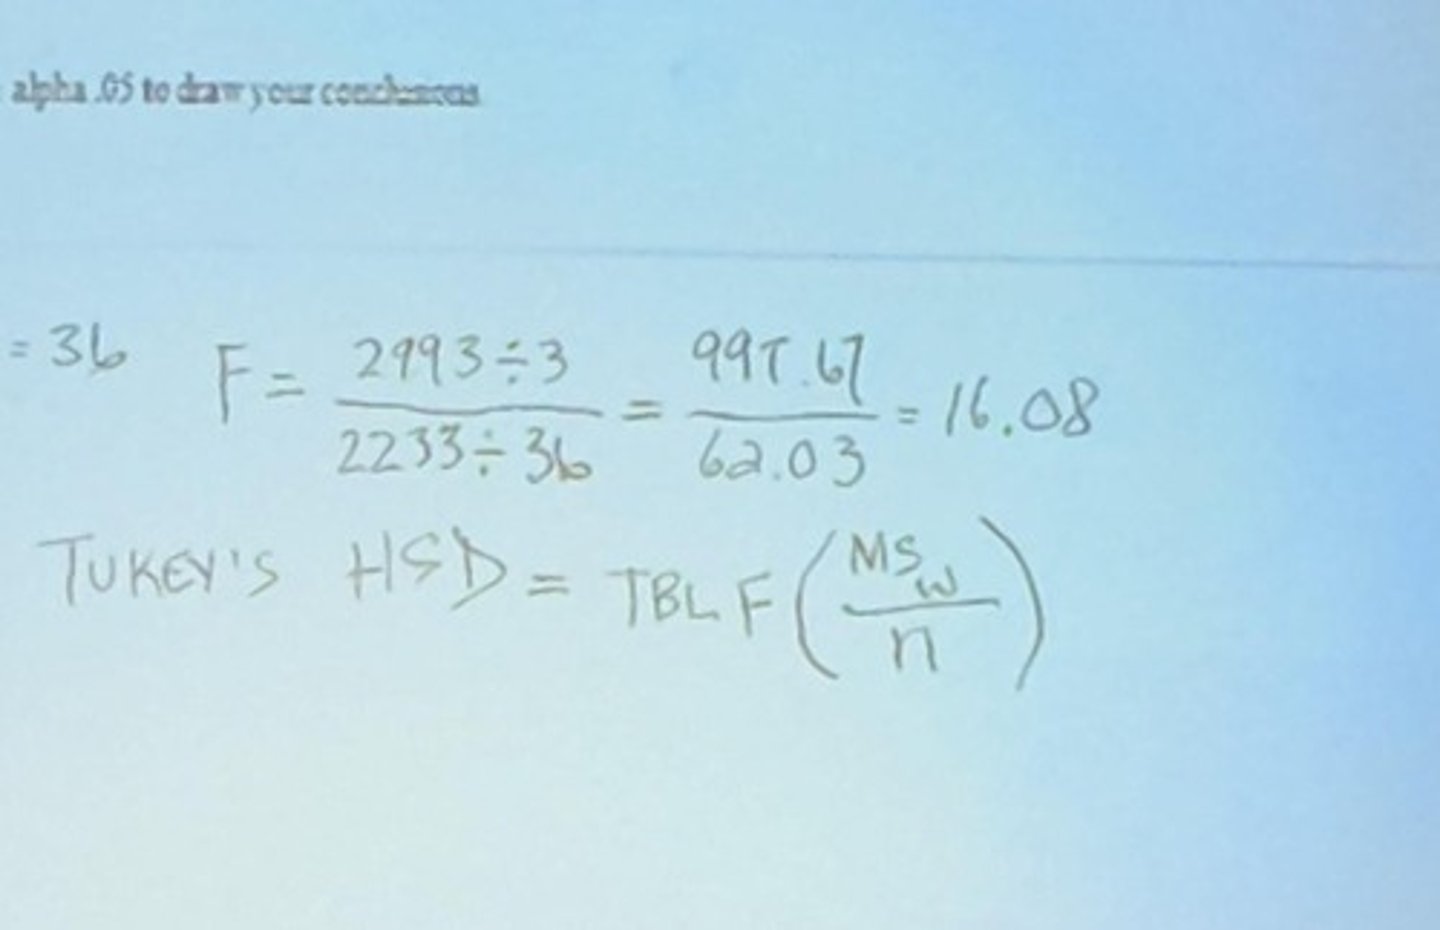 alpha .05 to draw your conclusions
= 36 F = 2993÷3 / 2233÷36 = 997.67 / 62.03 = 16.08
TUKEY'S HSD = TBL F (MSw / n)